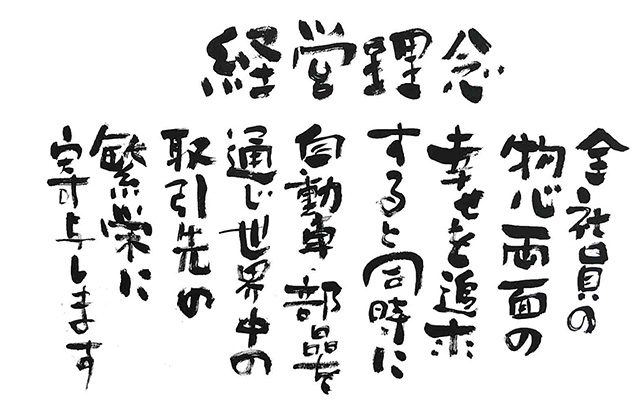 経営理念
全社員の
物心両面の
幸せを追求
すると同時に
自動車・部品を
通じ世界中の
取引先の
繁栄に
寄与します